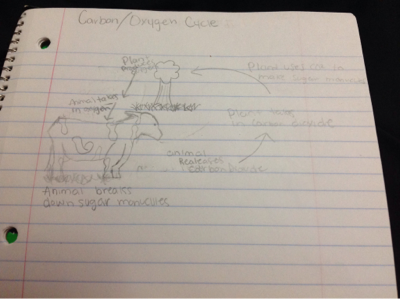 Carbon/Oxygen Cycle
Plant
Plant uses CO2 to
make sugar molecules
Animal takes
in oxygen
Plant takes
in carbon dioxide
animal
Releases
carbon dioxide
Animal breaks
down sugar